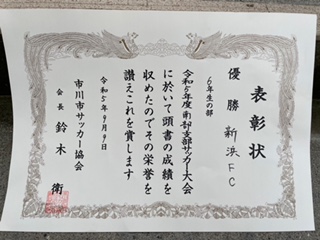 表彰状
優勝 新浜FC
6年生の部
令和5年度南部支部サッカー大会
に於いて頭書の成績を
収めたのでその栄誉を
讃えこれを賞します
令和5年9月9日
市川市サッカー協会
会長 鈴木 衛